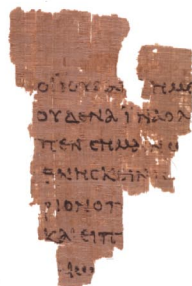 ΟΙ ΙΟΥΔΑ ΗΜΕ
ΟΥΔΕΝΑ ΙΝΑ Ο Λ
ΠΕΝ CΗΜΑΙΝΩ
ΘΝΗCΚΕΙΝ
ΡΙΟΝ Ο Π
ΚΑΙ ΕΙΠ